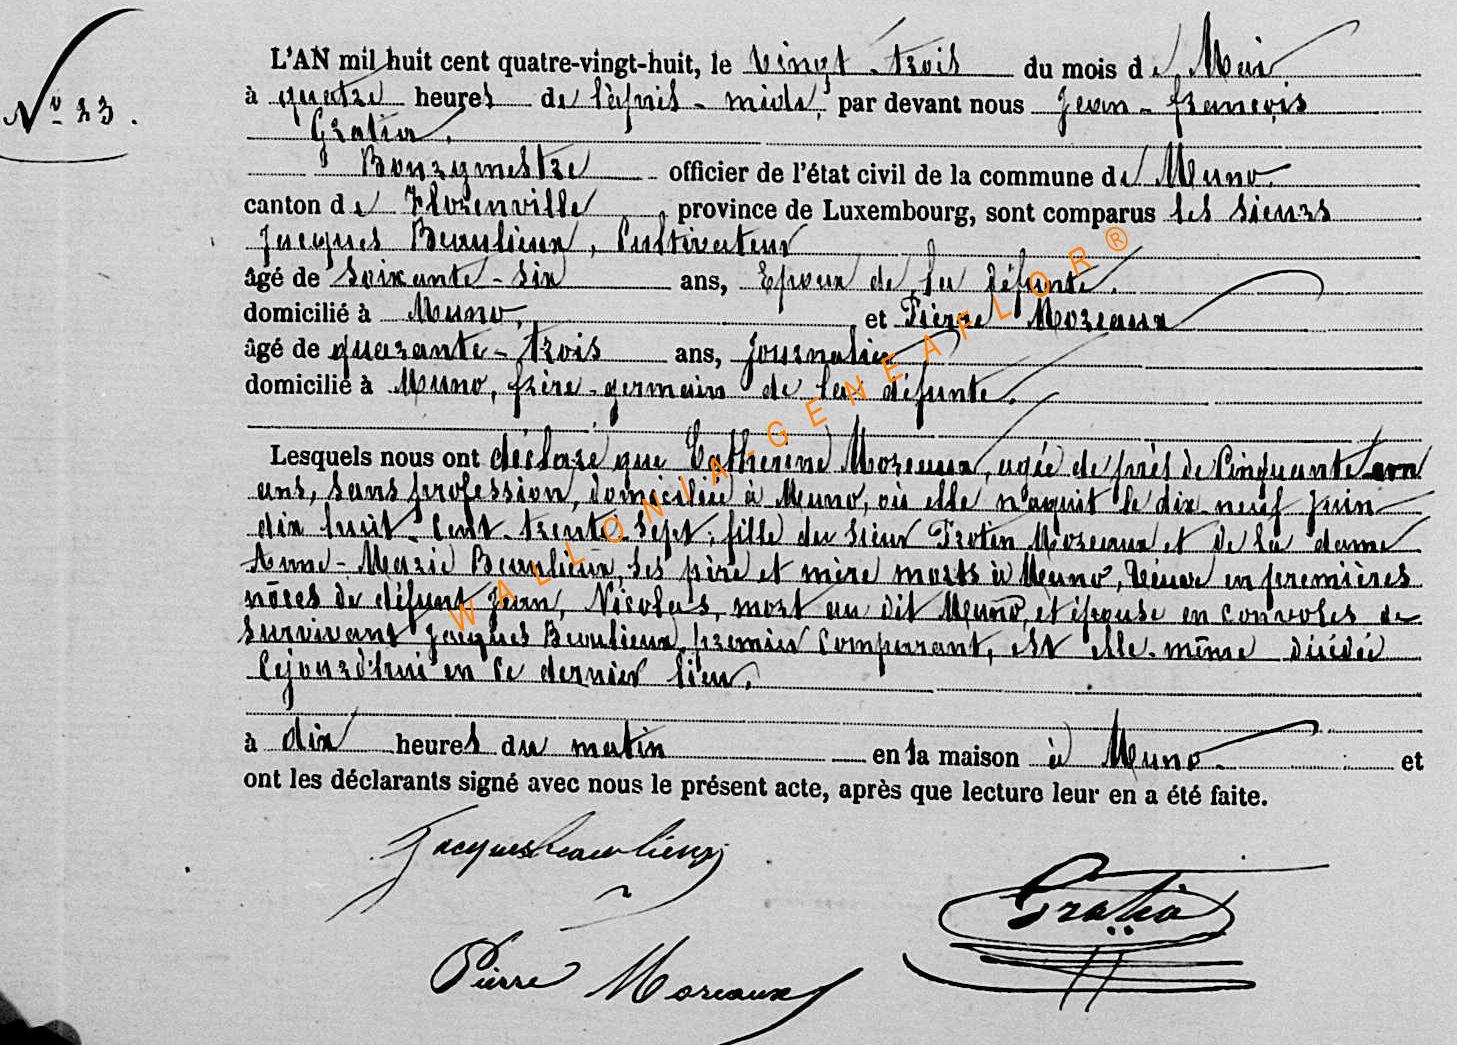 Nº 23.
L'AN mil huit cent quatre-vingt-huit, le vingt-trois du mois de Mai
à quatre heures de l'après-midi, par devant nous Jean-François
Gratia,
Bourgmestre officier de l'état civil de la commune de Muno,
canton de Florenville, province de Luxembourg, sont comparus les sieurs
Jacques Beaulieux, Cultivateur
âgé de soixante-six ans, Epoux de la défunte,
domicilié à Muno, et Pierre Moreaux
âgé de quarante-trois ans, journalier
domicilié à Muno, frère-germain de la défunte.
Lesquels nous ont déclaré que Catherine Moreaux, agée de près de Cinquante un
ans, sans profession, domiciliée à Muno, où elle n'aquit le dix neuf Juin
dix huit-cent-trente-sept; fille du sieur Protin Moreaux et de la dame
Anne-Marie Beaulieux, ses père et mère morts à Muno, Veuve en premières
nôces de défunt Jean, Nicolas, mort au dit Muno, et épouse en convoles de
survivant Jacques Beaulieux, premier Comparant, est elle-même décédée
cejourd'hui en ce dernier lieu,
à dix heures du matin en la maison à Muno et
ont les déclarants signé avec nous le présent acte, après que lecture leur en a été faite.
Jacques beaulieux
Gratia
Pierre Moreaux
WALLONIA-GENEAFLOR®